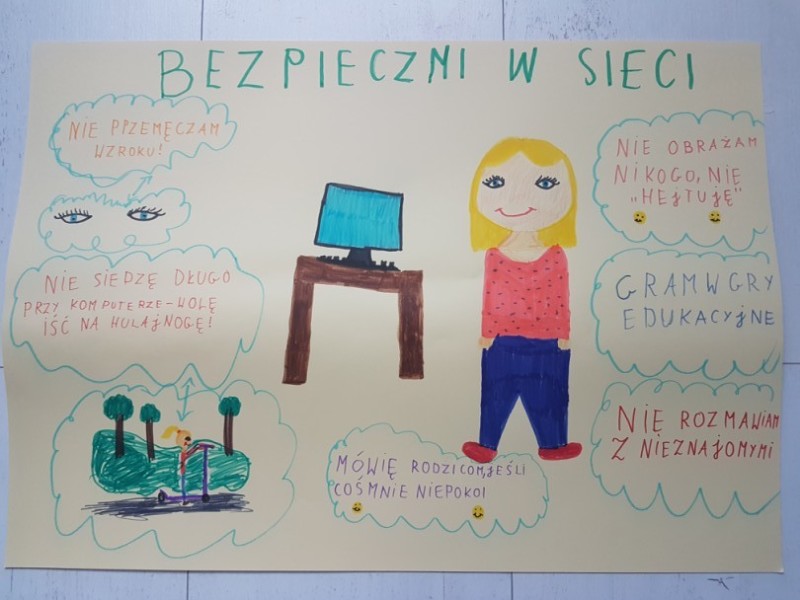 BEZPIECZNI W SIECI
NIE PPZEMĘCZAM
WZROKU!
NIE SIEDZĘ DŁUGO
PRZY KOMPUTERZE-WOLĘ
IŚĆ NA HULAJNOGĘ!
MÓWIĘ RODZICOM,JEŚLI
COŚMNIE NIEPOKOI
NIE OBRAŻAM
NIKOGO, NIE
„HEJTUJĘ"
GRAM W GRY
EDUKACYJNE
NIE ROZMAWIAM
Z NIEZNAJOMYMI